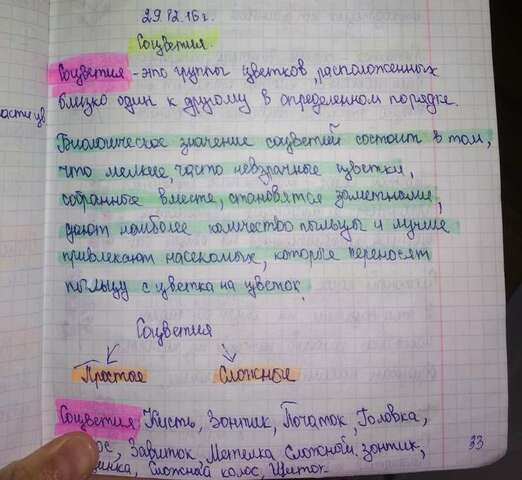 29.12.16г.
Соцветия.
Соцветия - это группы цветков, расположенных
близко один к другому в определенном порядке.
Биологическое значение соцветий состоит в том,
что мелкие, часто невзрачные цветки,
собранные вместе, становятся заметными,
дают наиболее количество пыльцы и лучше
привлекают насекомых, которые переносят
пыльцу с цветка на цветок.
Соцветия
Простые Сложные
Соцветия: Кисть, Зонтик, Початок, Головка,
Завиток, Метелка Сложный зонтик,
Сложный колос, Щиток.
33